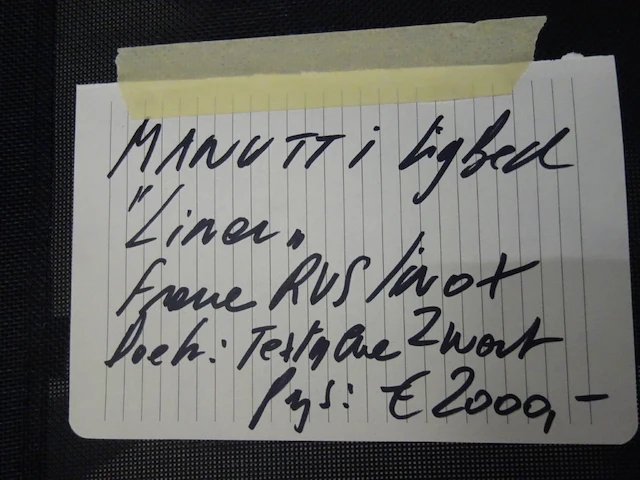 MANUTTi Ligbed
"Liner"
Frame RVS/inox
Doek: Textylene Zwart
Prijs: € 2000,-